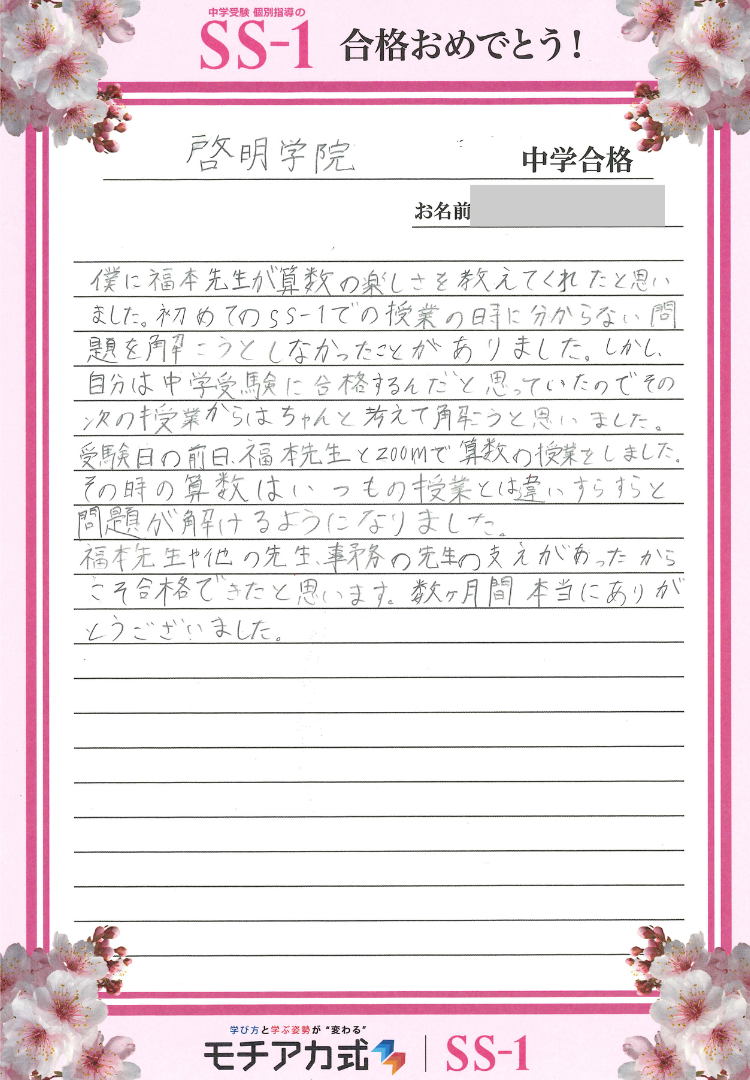 中学受験 個別指導の
SS-1 合格おめでとう！
啓明学院 中学合格
お名前
僕に福本先生が算数の楽しさを教えてくれたと思い
ました。初めてのSS-1での授業の時に分からない問
題を解こうとしなかったことがありました。しかし、
自分は中学受験に合格するんだと思っていたのでその
次の授業からはちゃんと考えて解こうと思いました。
受験日の前日、福本先生とzoomで算数の授業をしました。
その時の算数はいつもの授業とは違いすらすらと
問題が解けるようになりました。
福本先生や他の先生、事務の先生の支えがあったから
こそ合格できたと思います。数ヶ月間 本当にありが
とうございました。
学び方と学ぶ姿勢が“変わる”
モチアカ式 SS-1